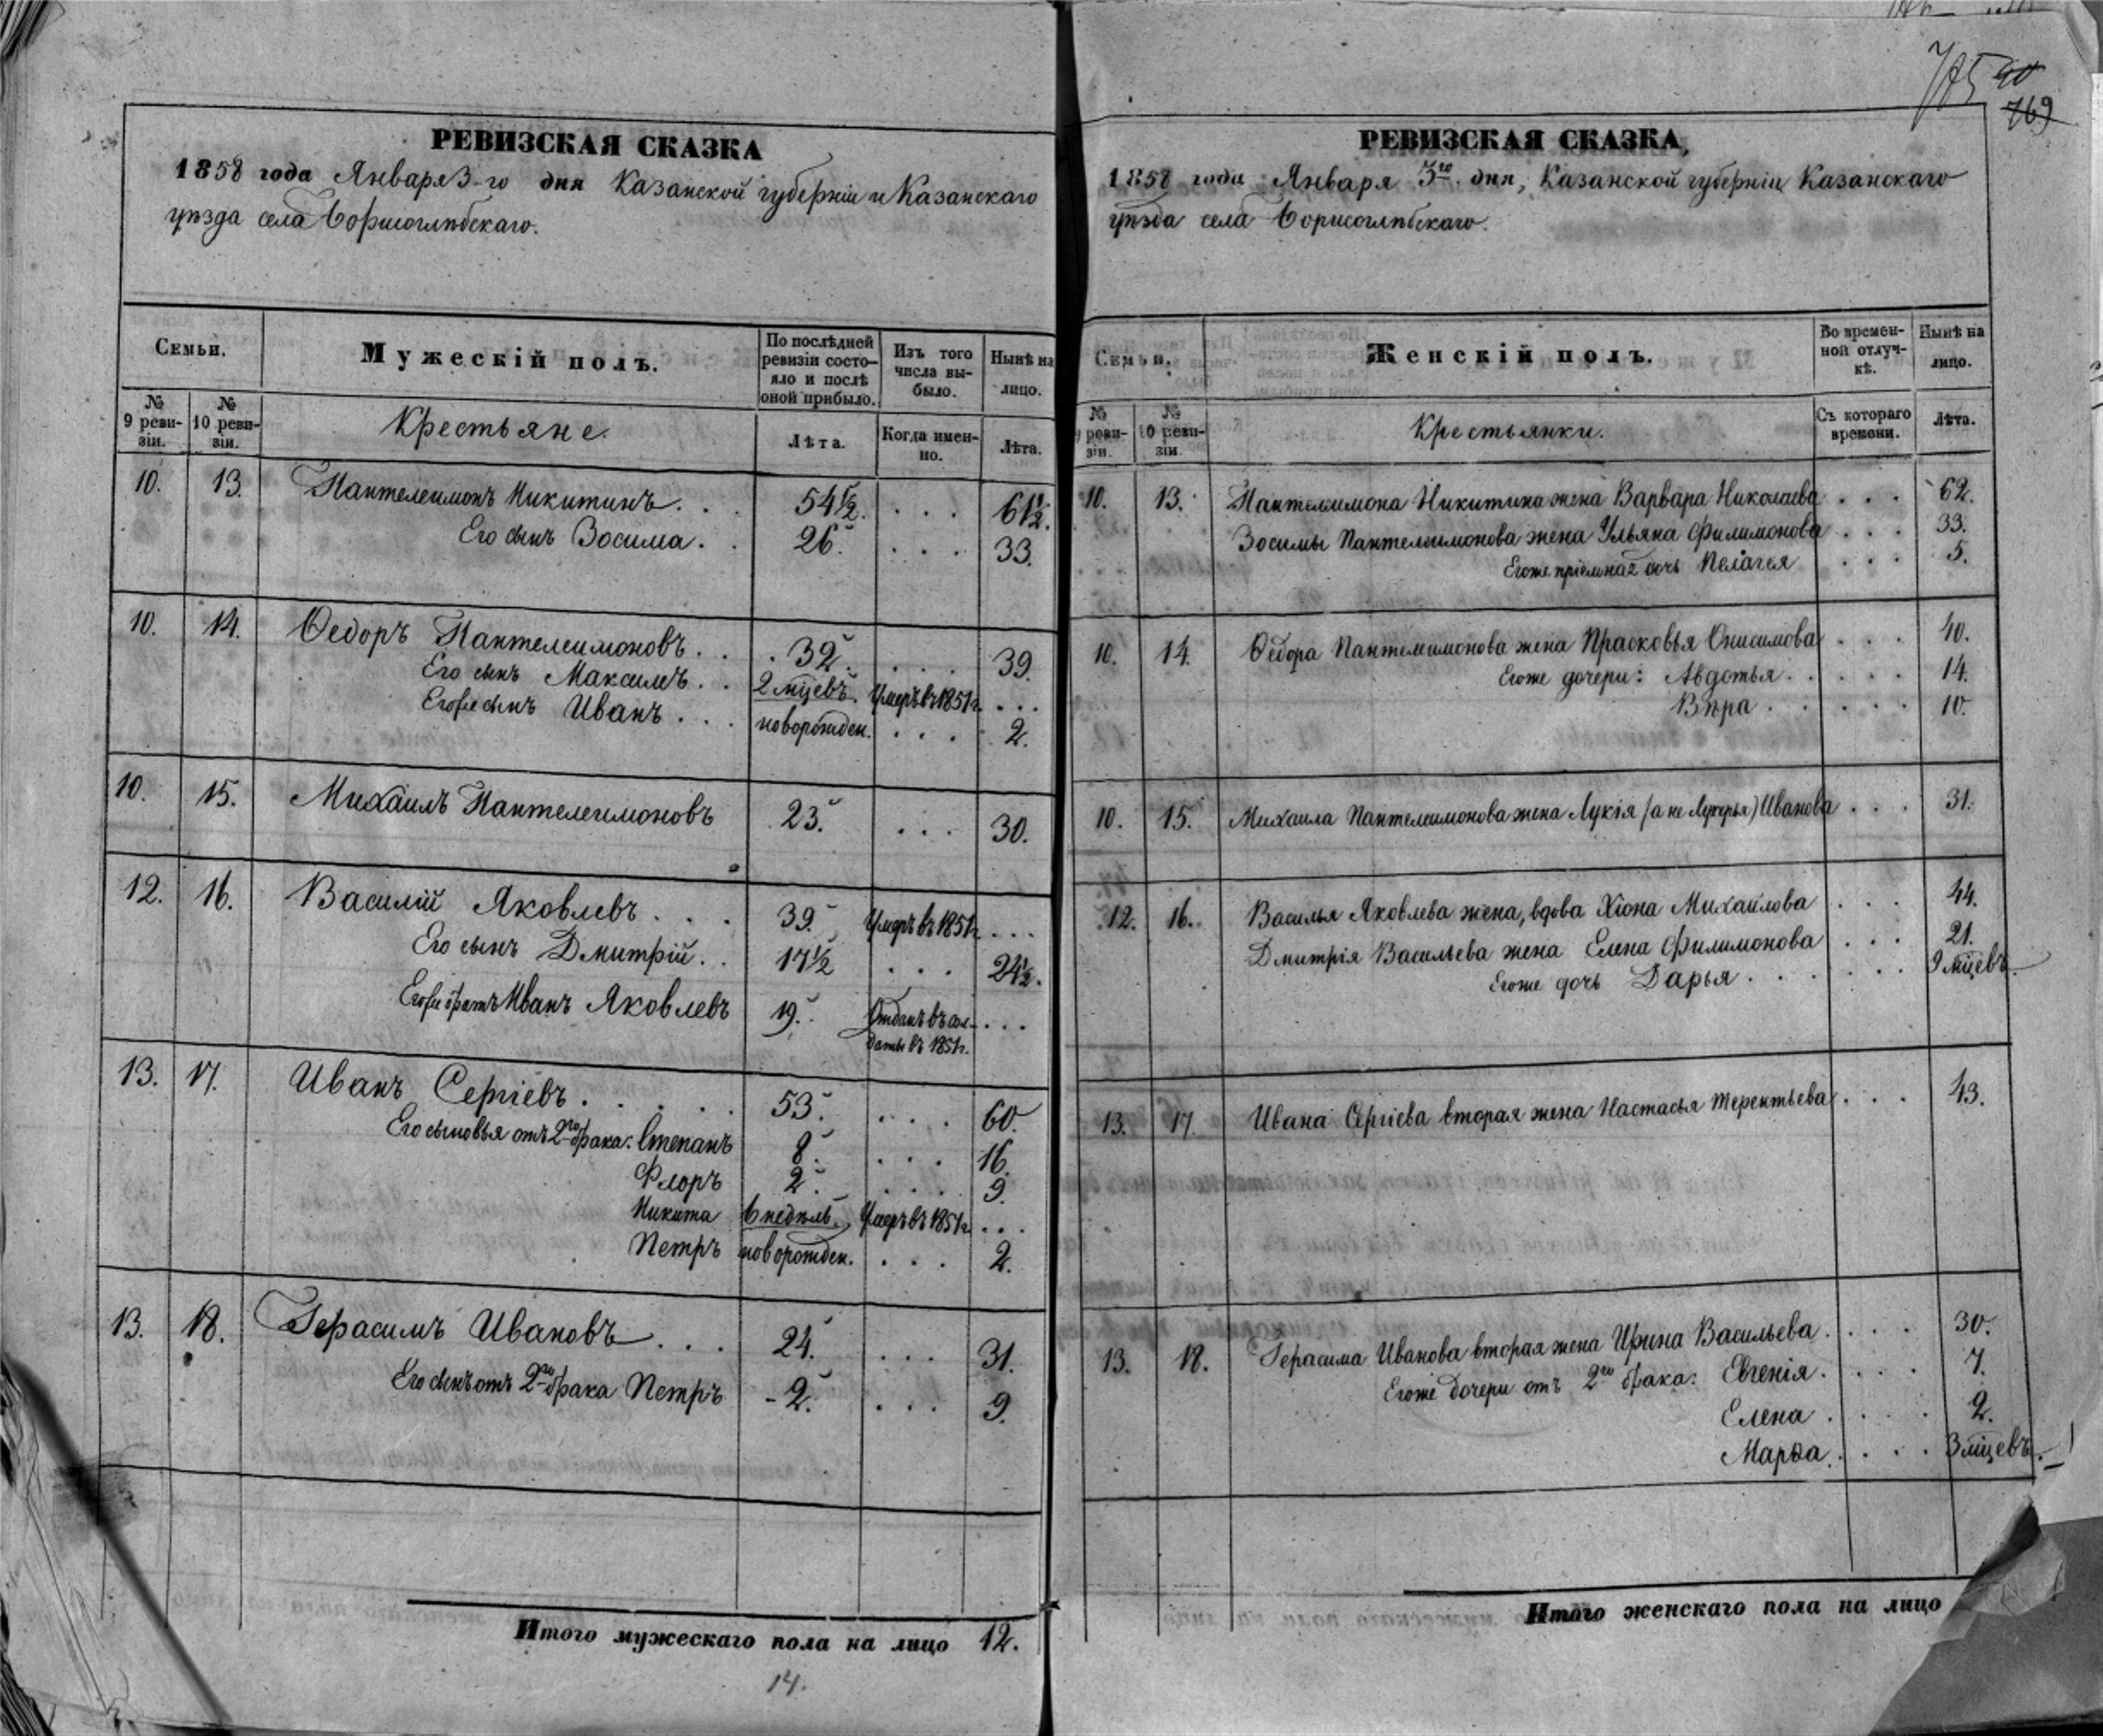 РЕВИЗСКАЯ СКАЗКА
1858 года Января 3-го дня Казанской губерніи и Казанскаго
уѣзда села Борисоглѣбскаго.
Семьи.
Мужескій полъ.
По послѣдней ревизіи состояло и послѣ оной прибыло.
Изъ того числа выбыло.
Нынѣ на лицо.
№ 9 ревизіи.
№ 10 ревизіи.
Крестьяне.
Лѣта.
Когда именно.
Лѣта.
10. 13. Пантелеимонъ Никитинъ. . . 54½. . . . 61½.
Его сынъ Зосима. . 26. . . . 33.
10. 14. Ѳедоръ Пантелеимоновъ. . . 32. . . . 39.
Его сынъ Максимъ. . 2 мцевъ. Умеръ въ 1851 г. . . .
Его же сынъ Иванъ. . . новорожден. . . . 2.
10. 15. Михаилъ Пантелеимоновъ 23. . . . 30.
12. 16. Василій Яковлевъ. . . 39. Умеръ въ 1851 г. . . .
Его сынъ Дмитрій. . 17½ . . . 24½.
Его же братъ Иванъ Яковлевъ 19. Отданъ въ сол- . . .
даты въ 1851 г.
13. 17. Иванъ Сергіевъ. . . . . 53. . . . 60.
Его сыновья отъ 2го брака: Степанъ 8. . . . 16.
Флоръ 2. . . . 9.
Никита 6 недѣль. Умеръ въ 1851 г. . . .
Петръ новорожден. . . . 2.
13. 18. Герасимъ Ивановъ . . . 24. . . . 31.
Его сынъ отъ 2го брака Петръ - 2. . . . 9.
Итого мужескаго пола на лицо 12.
14.
769
РЕВИЗСКАЯ СКАЗКА,
1858 года Января 3го дня, Казанской губерніи Казанскаго
уѣзда села Борисоглѣбскаго.
Семьи.
Женскій полъ.
Во временной отлучкѣ.
Нынѣ на лицо.
№ 9 ревизіи.
№ 10 ревизіи.
Крестьянки.
Съ котораго времени.
Лѣта.
10. 13. Пантелеимона Никитина жена Варвара Николаева . . . 62.
Зосимы Пантелеимонова жена Ульяна Филимонова . . . 33.
Его же пріемная дочь Пелагея . . . 5.
10. 14. Ѳедора Пантелеимонова жена Прасковья Онисимова . . . 40.
Его же дочери: Авдотья. . . . . 14.
Вѣра . . . . . 10.
10. 15. Михаила Пантелеимонова жена Лукія (а не Лукерья) Иванова . . . 31.
12. 16. Василья Яковлева жена, вдова Хіона Михаилова . . . 44.
Дмитрія Васильева жена Елена Филимонова . . . 21.
Его же дочь Дарья . . . . . 9 мцевъ.
13. 17. Ивана Сергіева вторая жена Настасья Терентьева . . . 43.
13. 18. Герасима Иванова вторая жена Ирина Васильева . . . . 30.
Его же дочери отъ 2го брака: Евгенія . . . . 7.
Елена . . . . 2.
Марѳа . . . . 3 мцевъ.
Итого женскаго пола на лицо